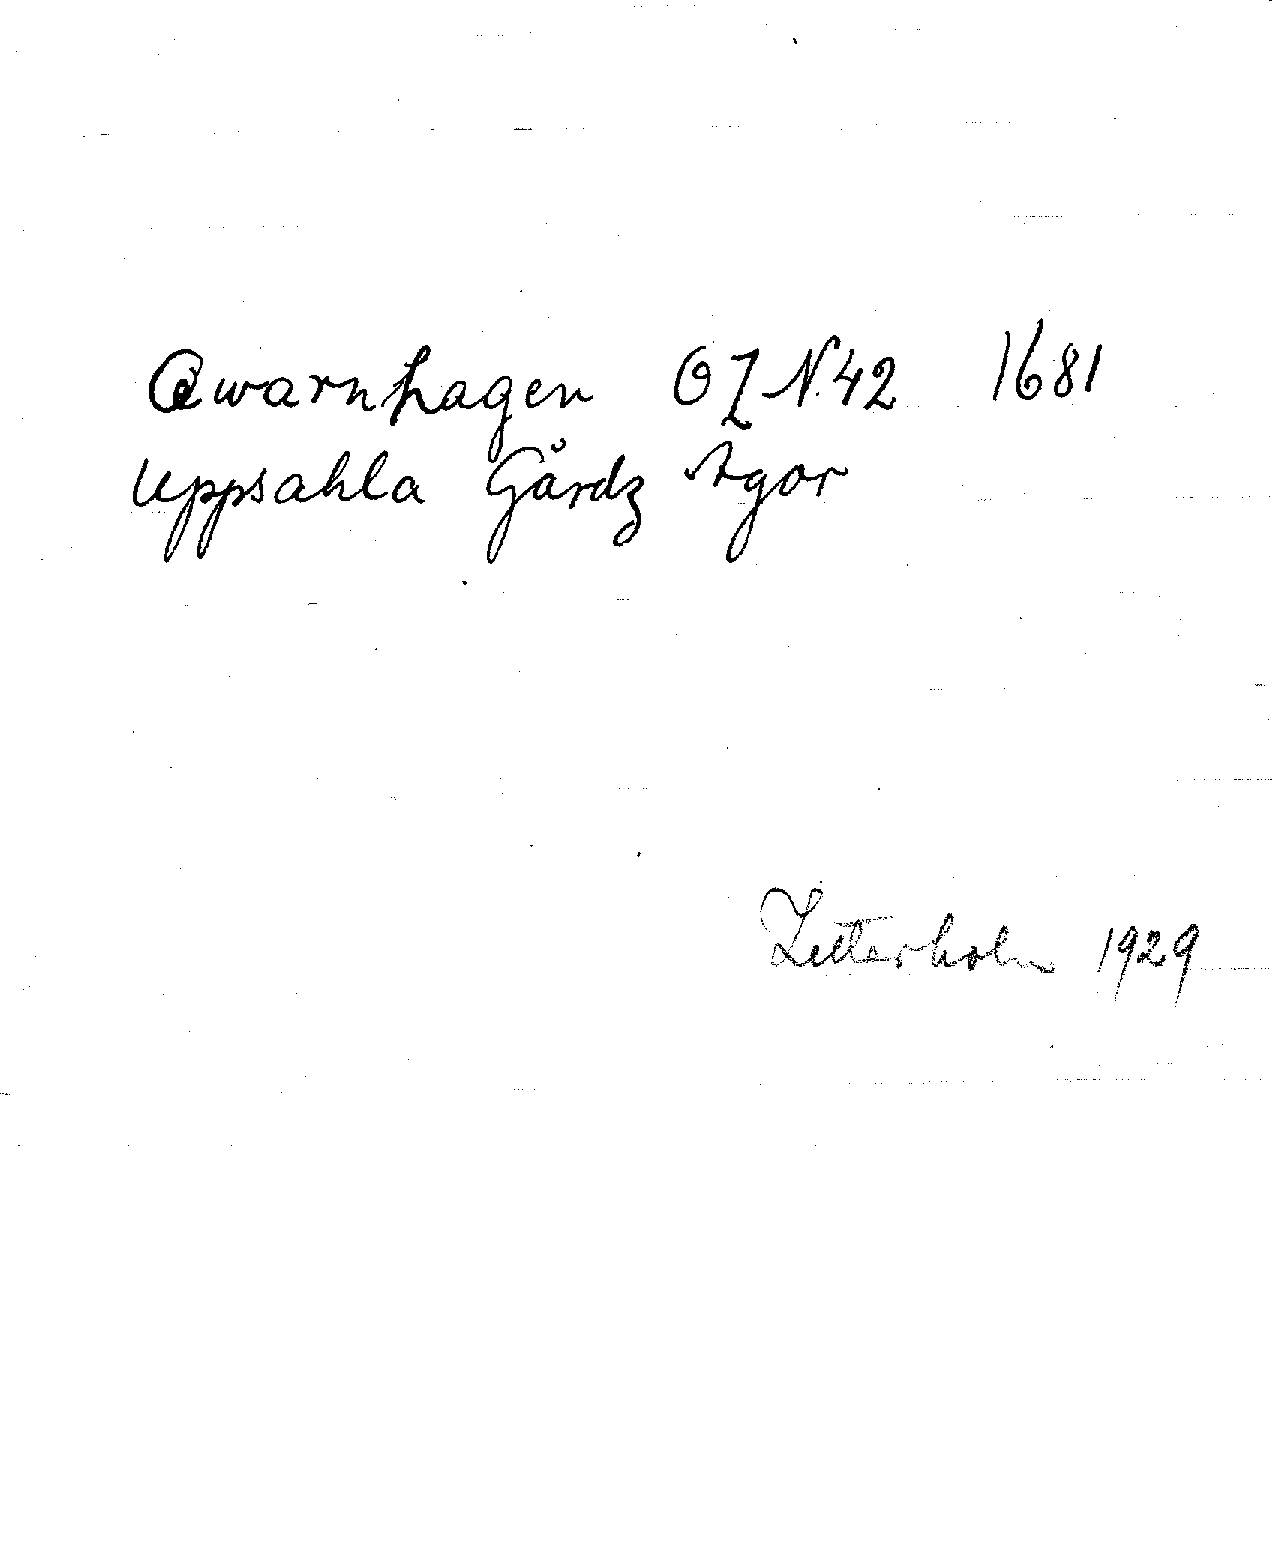 Qwarnhagen OZ N.42 1681
Uppsahla Gårdz Agor
Zetterholm 1929